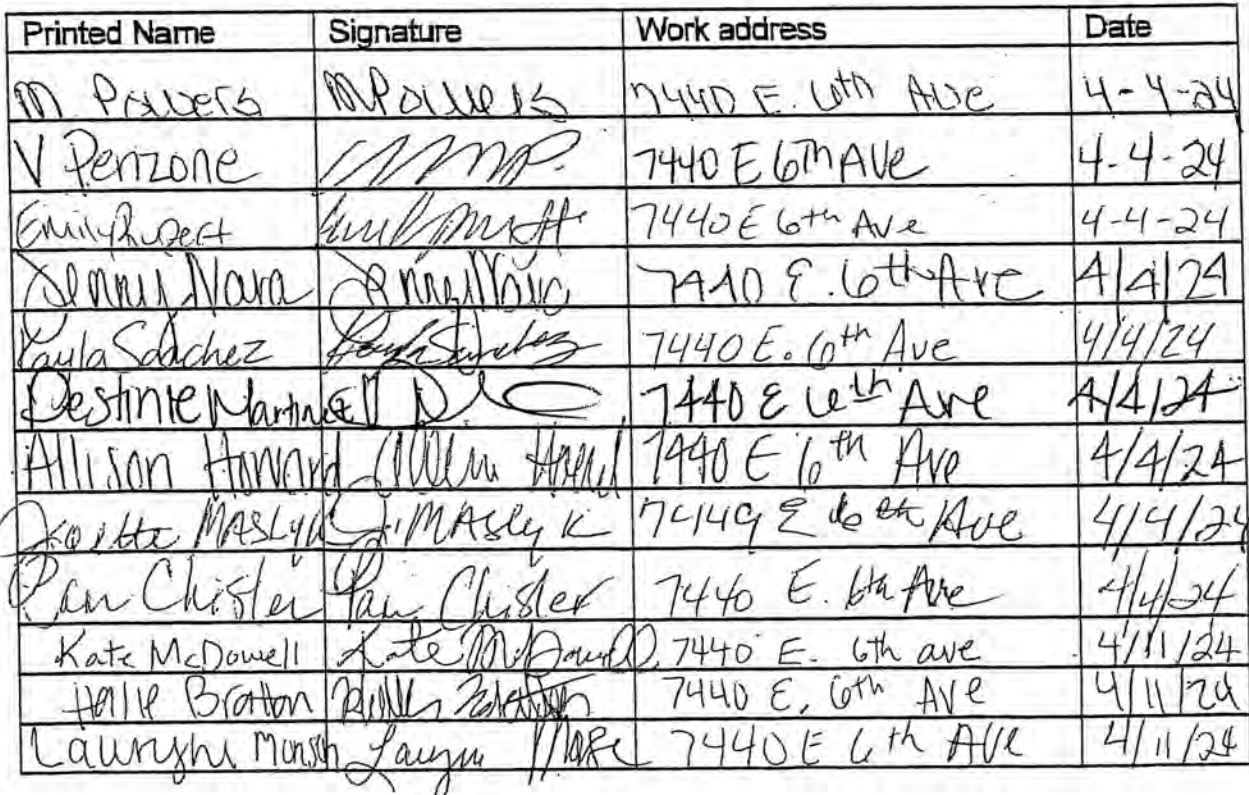 Printed Name Signature Work address Date
M Powers MPowers 7440 E. 6th Ave 4-4-24
V Penzone 7440 E 6th Ave 4-4-24
Emily Rupert 7440 E 6th Ave 4-4-24
Jenny Nava Jenny Nava 7440 E. 6th Ave 4/4/24
Kayla Sanchez Kayla Sanchez 7440 E. 6th Ave 4/4/24
Destinie Martinez 7440 E 6th Ave 4/4/24
Allison Howard 7440 E 6th Ave 4/4/24
MASlyk J. MASlyk 7449 E 6th Ave 4/4/24
Pam Chisler Pam Chisler 7440 E. 6th Ave 4/4/24
Kate McDowell Kate McDowell 7440 E. 6th ave 4/11/24
Halle Bratton 7440 E. 6th Ave 4/11/24
7440 E 6th AVE 4/11/24